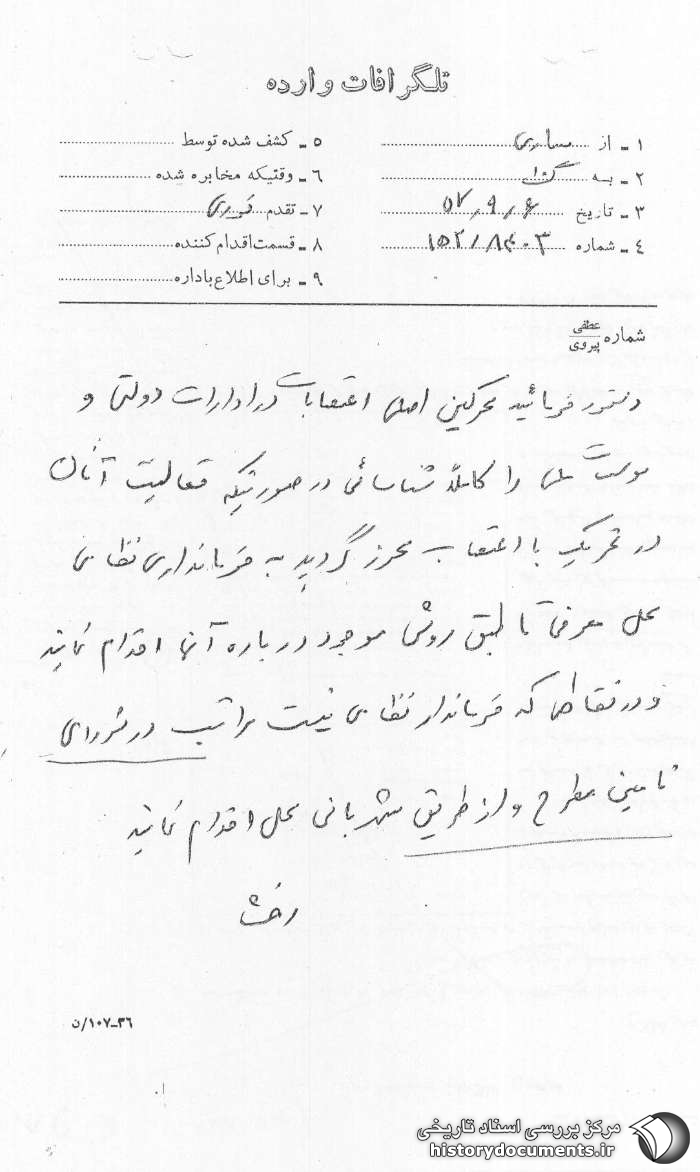 تلگرافات وارده
۱ - از ساری
۲ - به
۳ - تاریخ ۵۷٫۹٫۶
۴ - شماره ۱۵۲/۸۴۰۳
۵ - کشف شده توسط
۶ - وقتیکه مخابره شده
۷ - تقدم فوری
۸ - قسمت اقدام کننده
۹ - برای اطلاع باداره
شماره عطفی
پیروی
دستور فرمائید محرکین اصلی اعتصابات در ادارات دولتی و
ملی را کاملاً شناسائی در صورتیکه فعالیت آنان
در تحریک با اعتصاب محرز گردید به فرمانداری نظامی
محل معرفی تا طبق روش موجود درباره آنها اقدام نمایند
و در نقاطی که فرماندار نظامی نیست مراتب در شورای
تامین مطرح و از طریق شهربانی محل اقدام نمایند
۳۶-۱۰۷/ن
مرکز بررسی اسناد تاریخی
historydocuments.ir